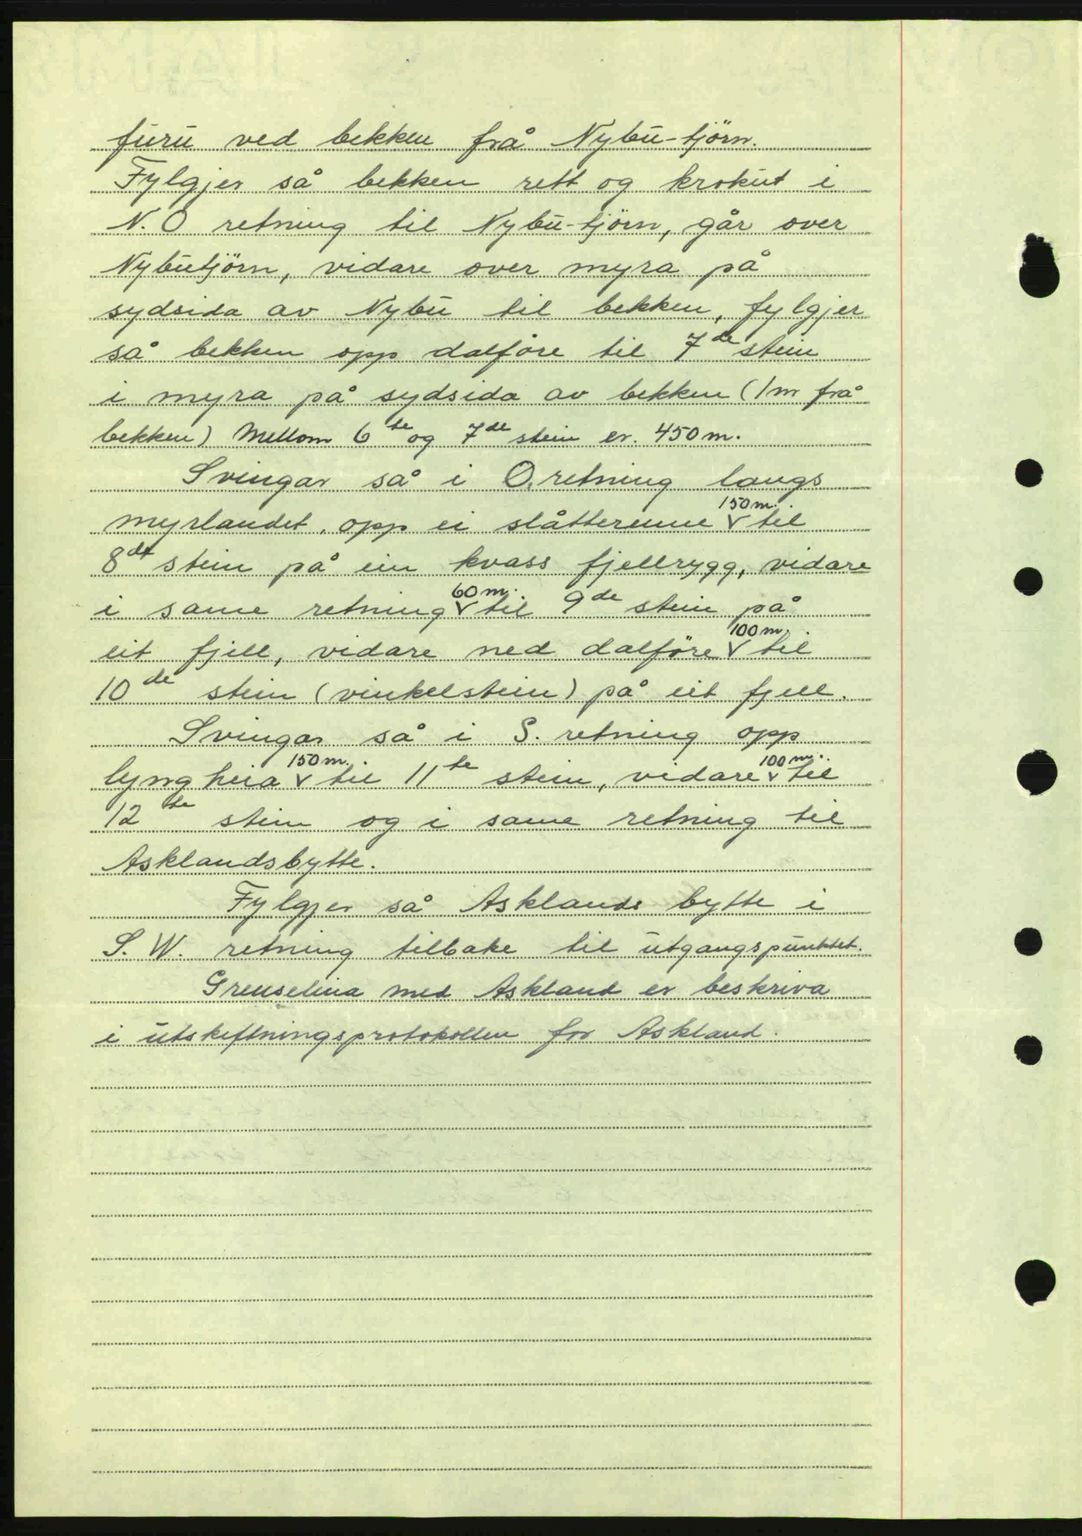 furu ved bekken frå Nybu-tjörn.
Fylgjer så bekken rett og krokut i
N.O retning til Nybu-tjörn, går over
Nybutjörn, vidare over myra på
sydsida av Nybu til bekken, fylgjer
så bekken opp dalføre til 7de stein
i myra på sydsida av bekken (1m frå
bekken) Mellom 6te og 7de stein er 450 m.
Svingar så i O. retning langs
myrlandet, opp ei slåtterenne ˅150 m. til
8de stein på ein kvass fjellrygg, vidare
i same retning ˅60 m. til 9de stein på
eit fjell, vidare ned dalføre ˅100 m. til
10de stein (vinkelstein) på eit fjell.
Svingar så i S. retning opp
lyngheia ˅150 m. til 11te stein, vidare ˅100 m. til
12te stein og i same retning til
Asklandsbytte.
Fylgjer så Asklands bytte i
S.W. retning tilbake til utgangspunktet.
Grenselina med Askland er beskriva
i utskiftningsprotokollen for Askland.